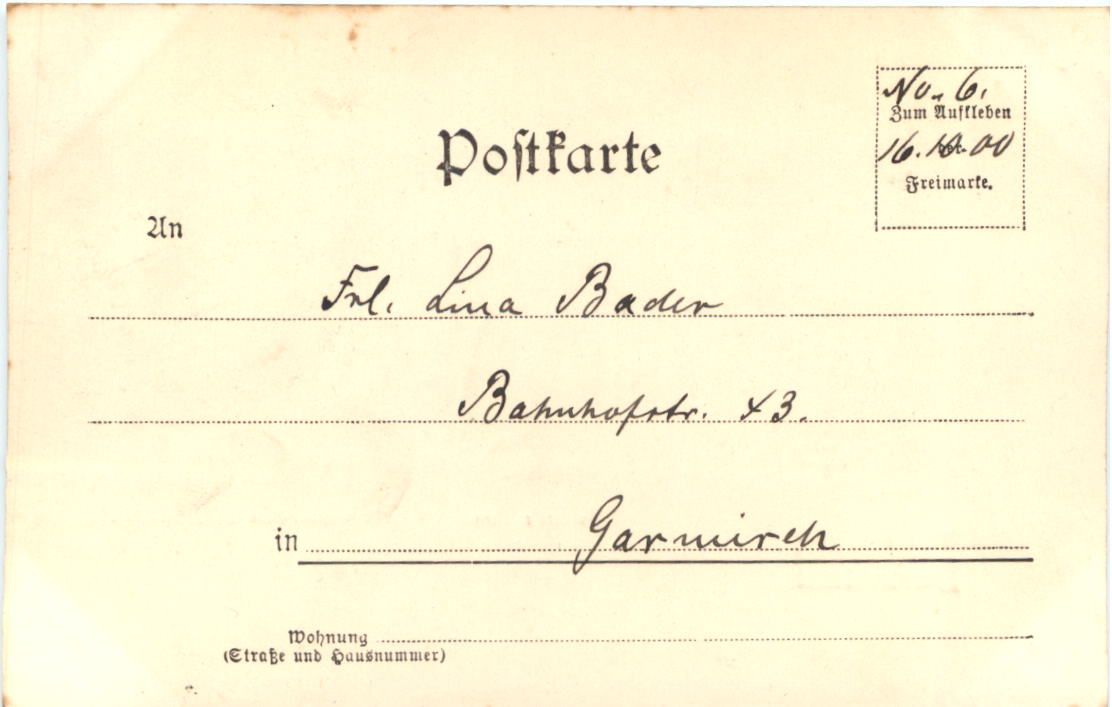 Postkarte
No. 6.
Zum Aufkleben
16.10.00
der
Freimarke.
An
Frl. Lina Bader
Bahnhofstr. 43.
in Garmisch
Wohnung
(Straße und Hausnummer)